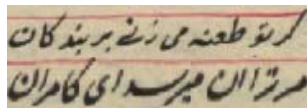 کر تو طعنه می زنی بر بندکان
مر ترا ان میرسد ای کامران